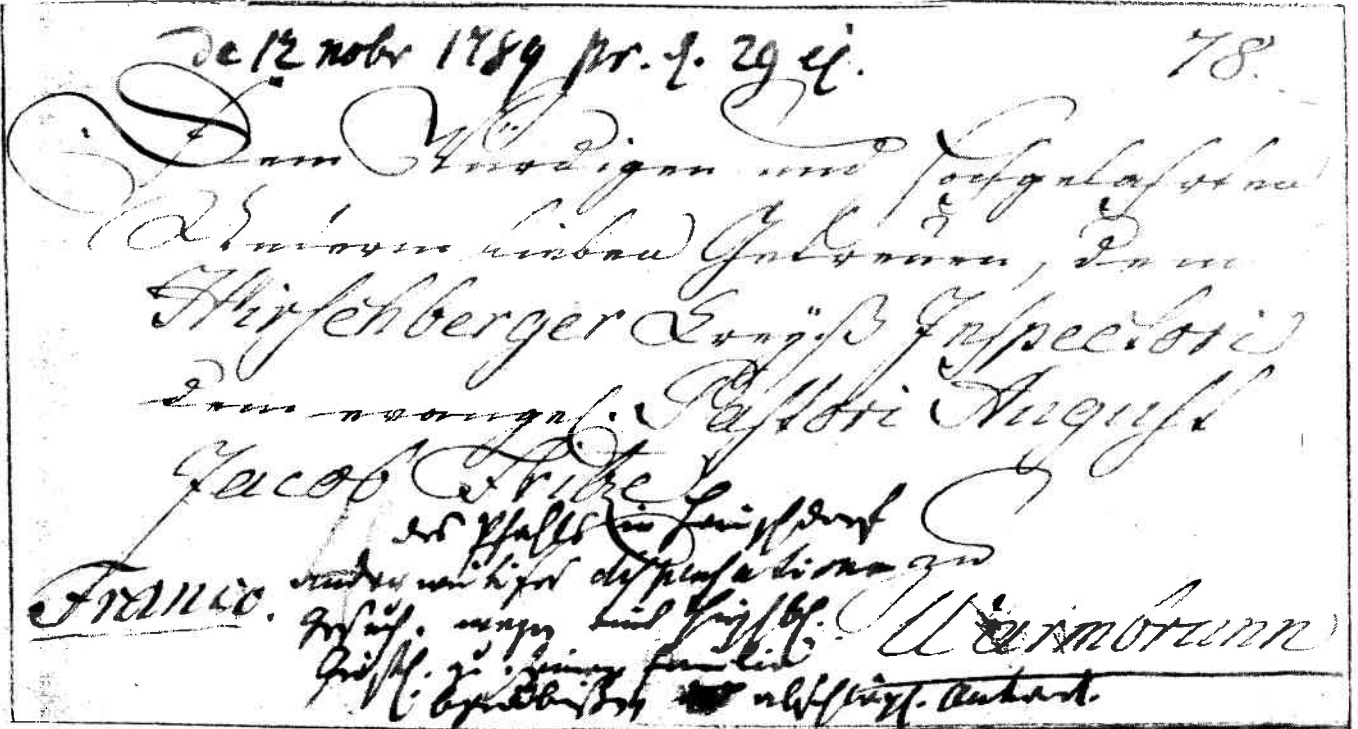 de 12 nobr 1789 pr. d. 29 ej. 78.
Dem Würdigen und Hochgelahrten
Unserm lieben Getreuen, dem
Hirschberger Creyß Inspectori
dem evangel. Pastori August
Jacob Fritze
des Pfahls in Herischdorf
zu
Franco. anderweitiges dispensations
Gesuch. wegen
Warmbrunn
zu seiner Familie
Begräbißes abschlägl. Antwort.